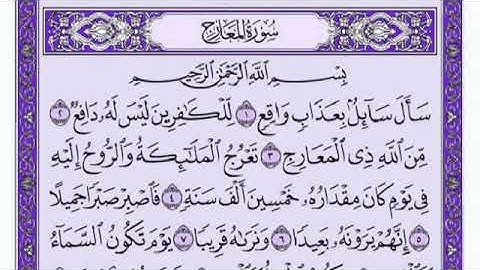 سُورَةُ المَعَارِجِ
بِسْمِ اللَّهِ الرَّحْمَٰنِ الرَّحِيمِ
سَأَلَ سَآئِلٌۢ بِعَذَابٖ وَاقِعٖ ١ لِّلۡكَٰفِرِينَ لَيۡسَ لَهُۥ دَافِعٞ ٢
مِّنَ ٱللَّهِ ذِي ٱلۡمَعَارِجِ ٣ تَعۡرُجُ ٱلۡمَلَٰٓئِكَةُ وَٱلرُّوحُ إِلَيۡهِ
فِي يَوۡمٖ كَانَ مِقۡدَارُهُۥ خَمۡسِينَ أَلۡفَ سَنَةٖ ٤ فَٱصۡبِرۡ صَبۡرٗا جَمِيلًا
٥ إِنَّهُمۡ يَرَوۡنَهُۥ بَعِيدٗا ٦ وَنَرَىٰهُ قَرِيبٗا ٧ يَوۡمَ تَكُونُ ٱلسَّمَآءُ